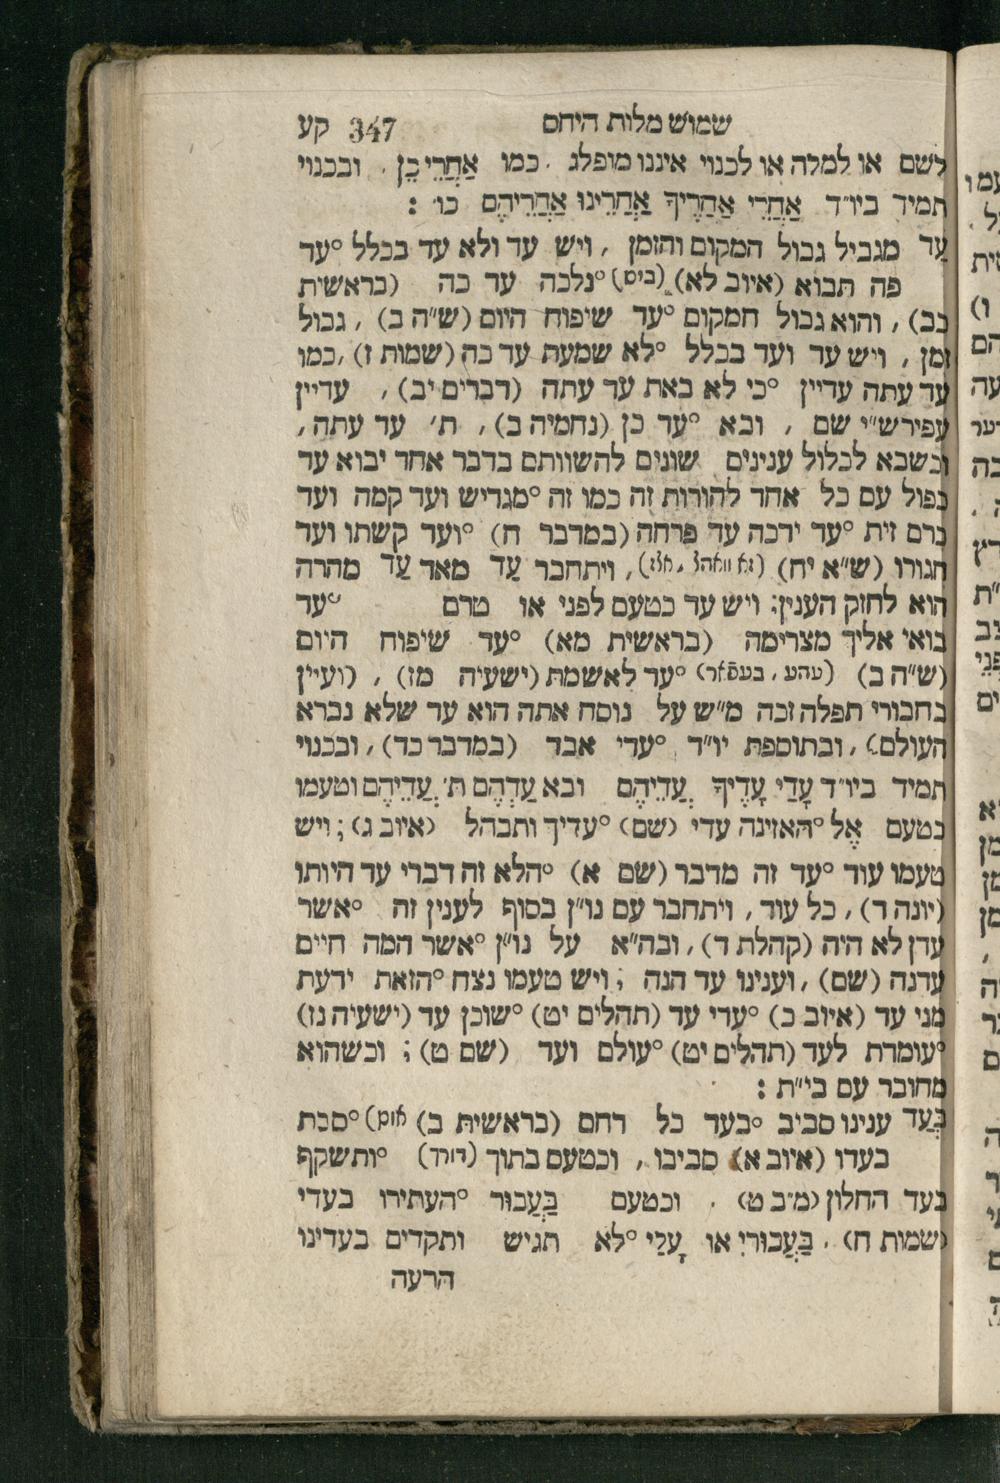 שמוש מלות היחס 347 קע
לשם או למלה או לכנוי איננו מופלג . כמו אַחֲרֵי כֵן . ובכנוי
תמיד ביו״ד אַחֲרֵי אַחֲרֶיךָ אַחֲרֵינוּ אַחֲרֵיהֶם כו׳ :
עַד מגביל גבול המקום והזמן , ויש עד ולא עד בכלל °עד
פה תבוא (איוב לא) (ביס) °נלכה עד כה (בראשית
כב) , והוא גבול המקום °עד שיפוח היום (ש״ה ב) , גבול
זמן , ויש עד ועד בכלל °לא שמעת עד כה (שמות ז) , כמו
עד עתה עדיין °כי לא באת עד עתה (דברים יב) , עדיין
עפירש״י שם , ובא °עד כן (נחמיה ב) , ת׳ עד עתה ,
וכשבא לכלול ענינים שונים להשוותם בדבר אחד יבוא עד
כפול עם כל אחד להורות זה כמו זה °מגדיש ועד קמה ועד
כרם זית °עד ירכה עד פרחה (במדבר ח) °ועד קשתו ועד
חגורו (ש״א יח) , ויתחבר עַד מאד עַד מהרה
הוא לחזק הענין ; ויש עד כטעם לפני או טרם °עד
בואי אליך מצרימה (בראשית מא) °עד שיפוח היום
(ש״ה ב) °עד לאשמת (ישעיה מז) , (ועיין
בחבורי תפלה זכה מ״ש על נוסח אתה הוא עד שלא נברא
העולם) , ובתוספת יו״ד °עדי אבד (במדבר כד) , ובכנוי
תמיד ביו״ד עָדַי עָדֶיךָ עֲדֵיהֶם ובא עַדְהֶם ת׳ עֲדֵיהֶם וטעמו
כטעם אֶל °האזינה עדי (שם) °עדיך ותבהל (איוב ג) ; ויש
טעמו עוד °עד זה מדבר (שם א) °הלא זה דברי עד היותו
(יונה ד) , כל עוד , ויתחבר עם נו״ן בסוף לענין זה °אשר
עדן לא היה (קהלת ד) , ובה״א על נו״ן °אשר המה חיים
עדנה (שם) , וענינו עד הנה ; ויש טעמו נצח °הזאת ידעת
מני עד (איוב כ) °עדי עד (תהלים יט) °שוכן עד (ישעיה נז)
°עומדת לעד (תהלים יט) °עולם ועד (שם ט) ; וכשהוא
מחובר עם בי״ת :
בְּעַד ענינו סביב °בעד כל רחם (בראשית ב) °סכת
בעדו (איוב א) סביבו , וכטעם בתוך °ותשקף
בעד החלון (מ״ב ט) . וכטעם בַּעֲבוּר °העתירו בעדי
(שמות ח) . בַּעֲבוּרִי או עָלַי °לא תגיש ותקדים בעדינו
הרעה